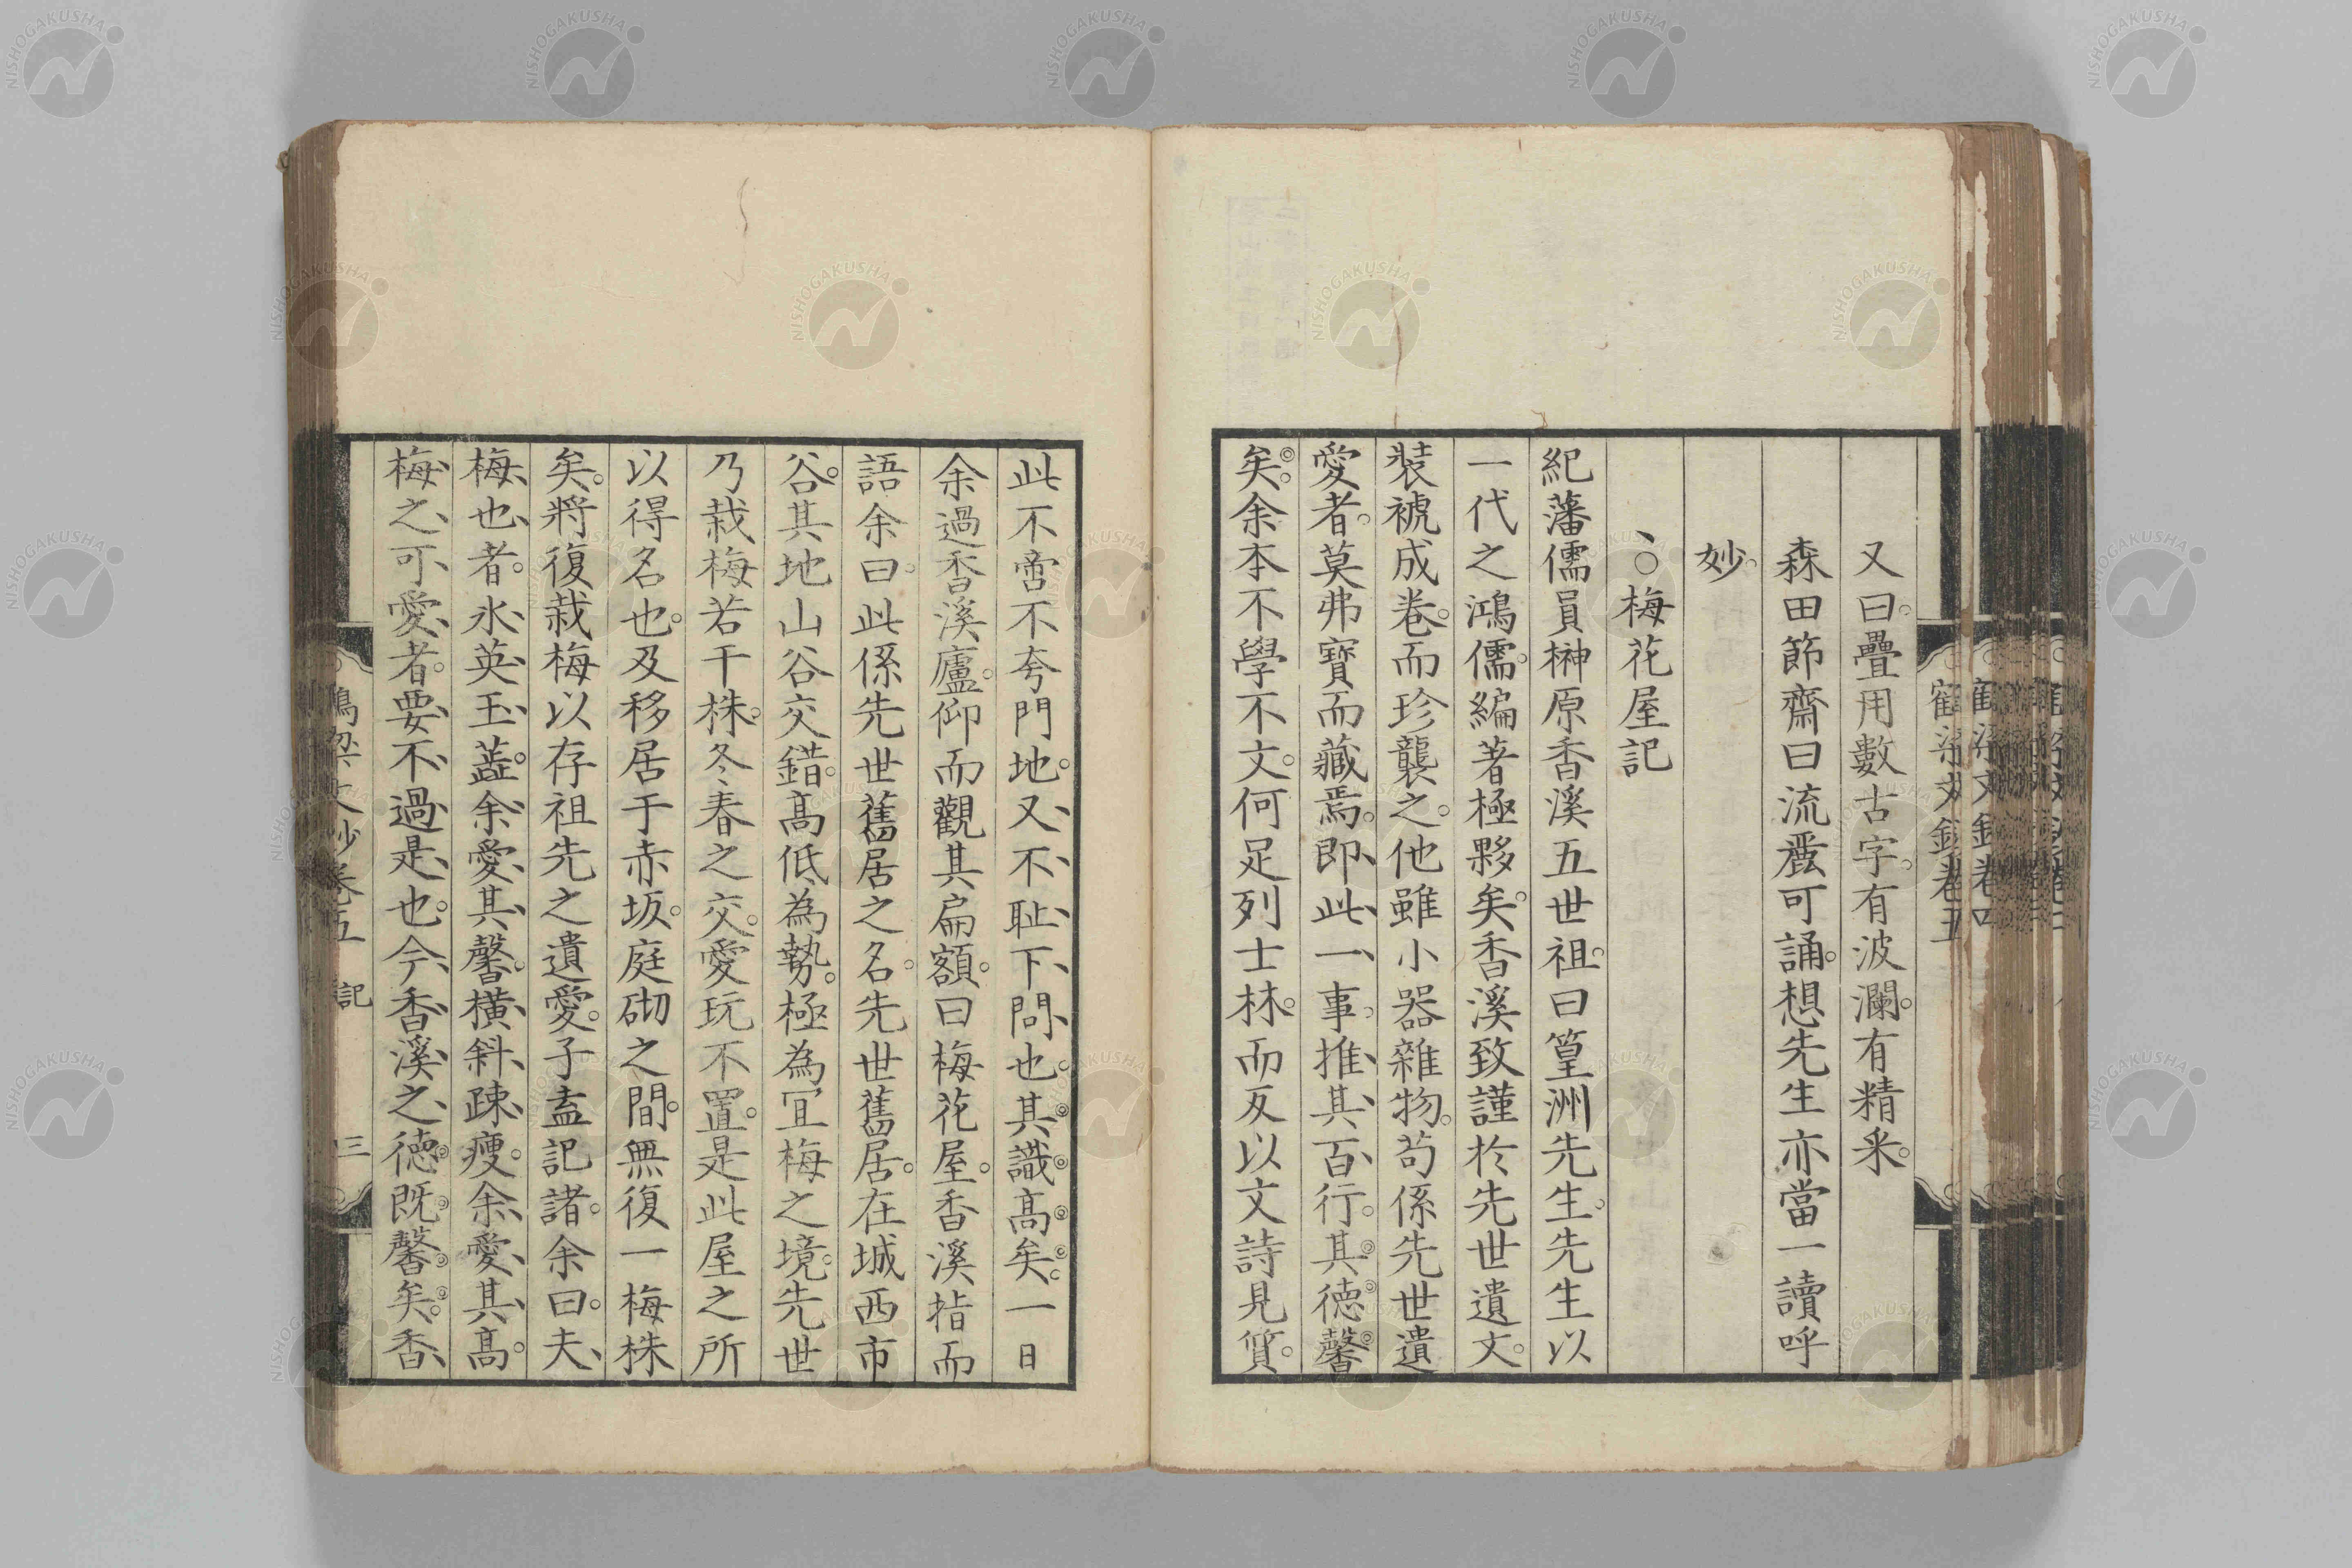 又曰疊用數古字有波瀾有精采
森田節齋曰流麗可誦想先生亦當一讀呼
妙
、○梅花屋記
紀藩儒員榊原香溪五世祖曰篁洲先生先生以
一代之鴻儒編著極夥矣香溪致謹於先世遺文
裝褫成卷而珍襲之他雖小器雜物苟係先世遺
愛者莫弗寶而藏焉即此一事推其百行其德馨
矣余本不學不文何足列士林而反以文詩見質
此不啻不夸門地又不耻下問也其識高矣一日
余過香溪廬仰而觀其扁額曰梅花屋香溪指而
語余曰此係先世舊居之名先世舊居在城西市
谷其地山谷交錯高低為勢極為宜梅之境先世
乃栽梅若干株冬春之交愛玩不置是此屋之所
以得名也及移居于赤坂庭砌之間無復一梅株
矣將復栽梅以存祖先之遺愛子盍記諸余曰夫
梅也者氷英玉蕋余愛其馨橫斜疎瘦余愛其高
梅之可愛者要不過是也今香溪之德既馨矣香
鶴梁文鈔卷五 記 三
NISHOGAKUSHA